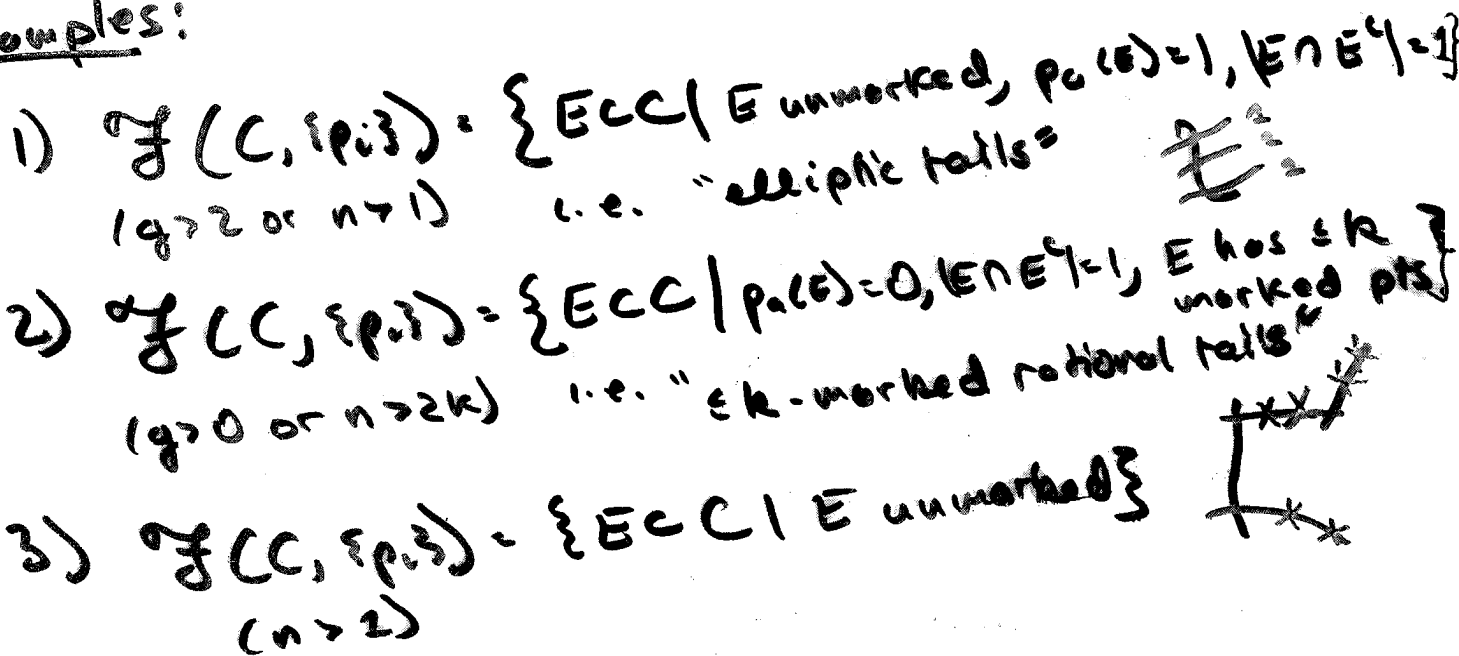 omples:
1) F(C, {pi}) = {E⊂C | E unmarked, pa(E)=1, |E∩E^c|=1}
(g>2 or n>1) i.e. "elliptic tails"
2) F(C, {pi}) = {E⊂C | pa(E)=0, |E∩E^c|=1, E has ≤k marked pts}
(g>0 or n>2k) i.e. "≤k-marked rational tails"
3) F(C, {pi}) = {E⊂C | E unmarked}